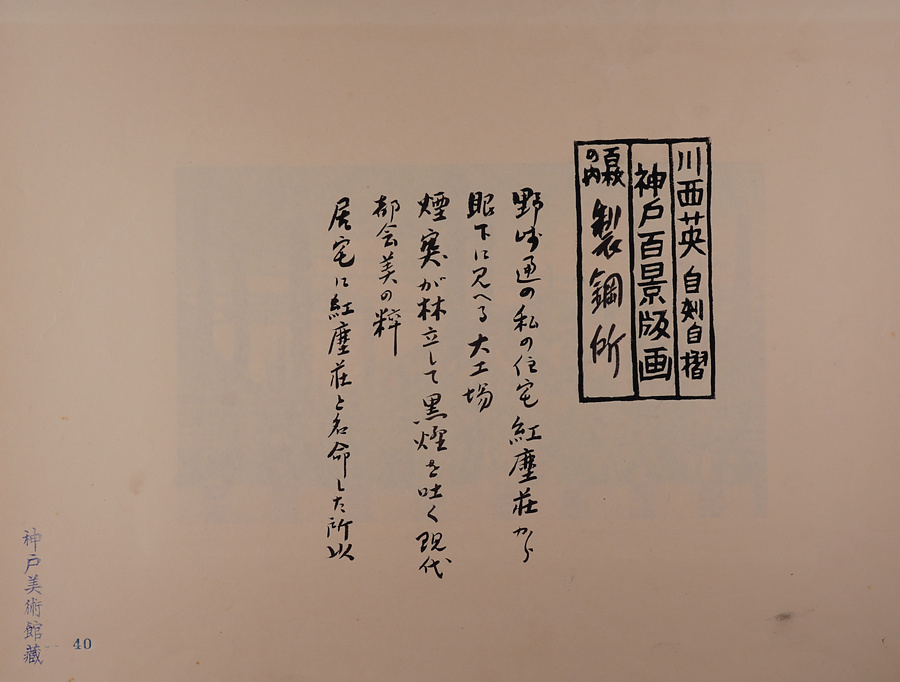 川西英 自刻自摺
神戸百景版画
百枚の内 製鋼所
野崎通の私の住宅 紅塵荘から
眼下に見へる大工場
煙突が林立して黒煙を吐く現代
都会美の粋
居宅に紅塵荘と名命した所以
神戸美術館蔵
40